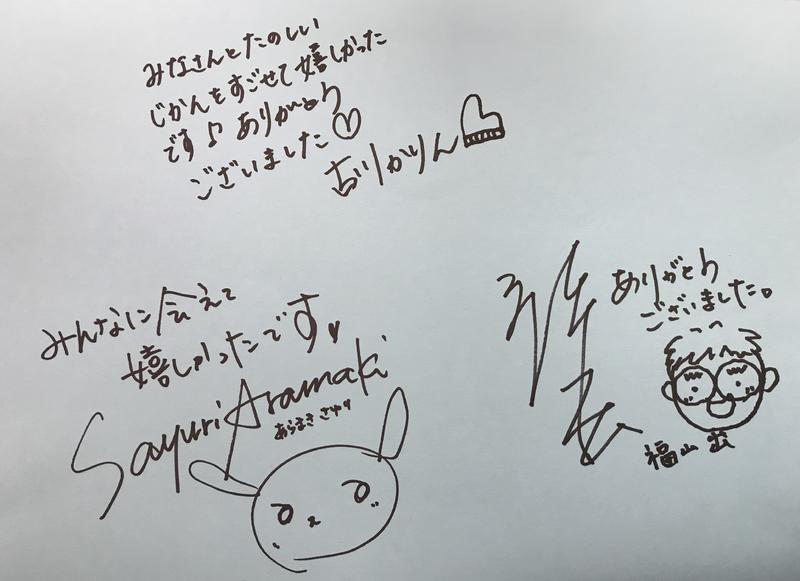 みなさんとたのしい
じかんをすごせて嬉しかった
です♪ ありがとう
ございました♡
おりかりん
みんなに会えて
嬉しかったです♥
Sayuri Aramaki
あらまきさゆり
ありがとう
ございました。
福山